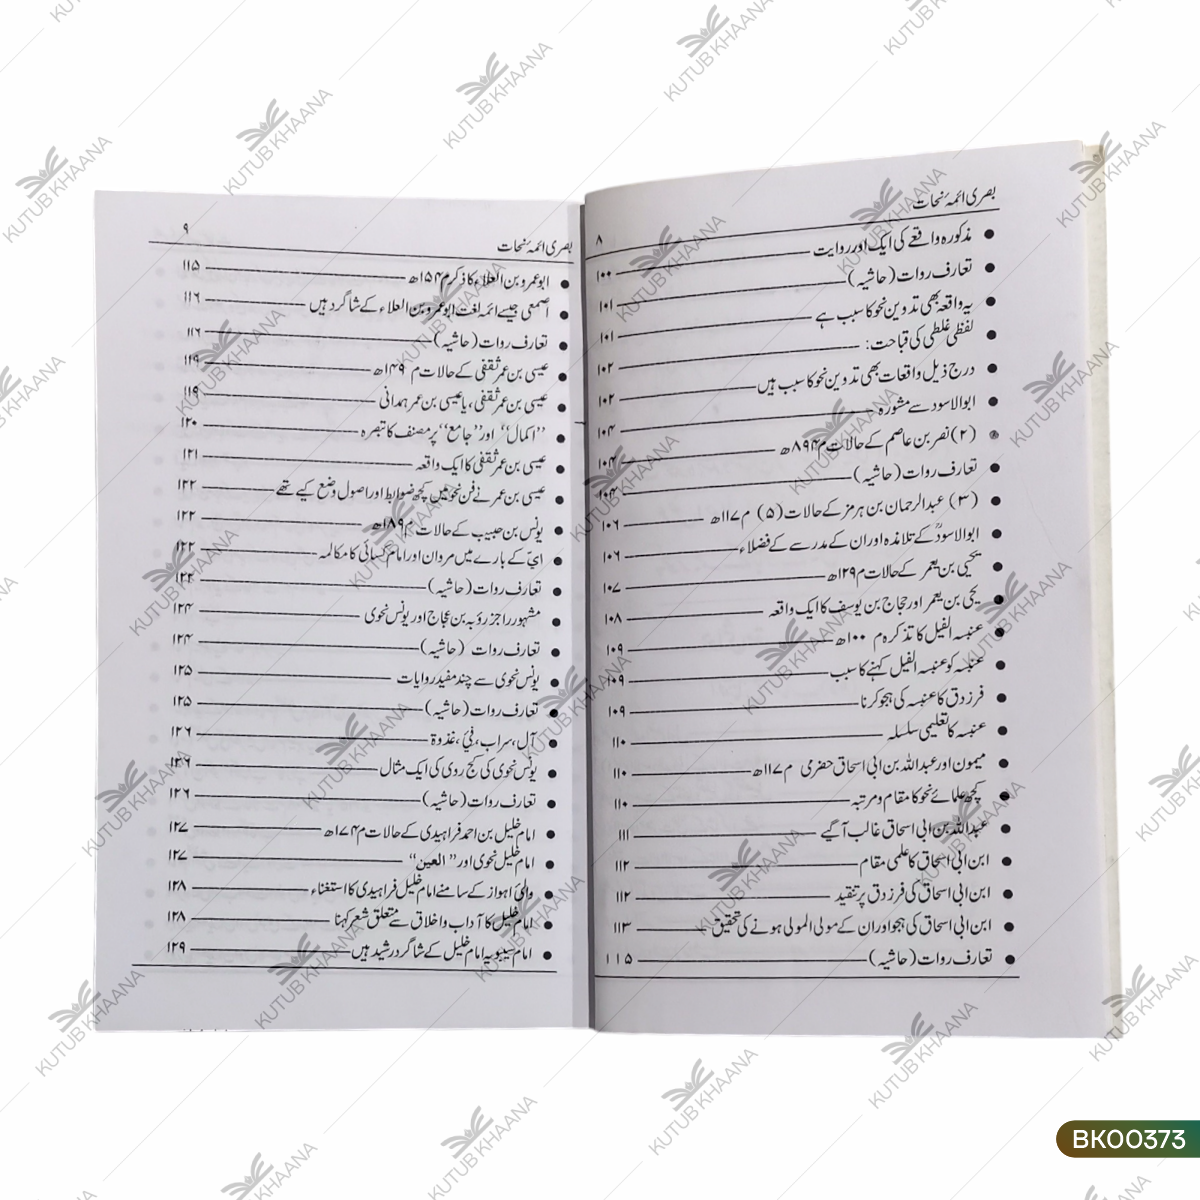 بصری ائمہ نحات
۸
مذکورہ واقعے کی ایک اور روایت ۱۰۰
تعارف روات (حاشیہ) ۱۰۱
یہ واقعہ بھی تدوین نحو کا سبب ہے ۱۰۱
لفظی غلطی کی قباحت: ۱۰۲
درج ذیل واقعات بھی تدوین نحو کا سبب ہیں ۱۰۲
ابوالاسود سے مشورہ ۱۰۴
(۲) نصر بن عاصم کے حالات م ۸۹۴ھ ۱۰۴
تعارف روات (حاشیہ) ۱۰۴
(۳) عبدالرحمان بن ہرمز کے حالات (۵) م ۱۱۷ھ ۱۰۶
ابوالاسودؒ کے تلامذہ اور ان کے مدرسے کے فضلاء ۱۰۶
یحییٰ بن یعمر کے حالات م ۱۲۹ھ ۱۰۷
یحیٰ بن یعمر اور حجاج بن یوسف کا ایک واقعہ ۱۰۸
عنبسہ الفیل کا تذکرہ م ۱۰۰ھ ۱۰۹
عنبسہ کو عنبسہ الفیل کہنے کا سبب ۱۰۹
فرزدق کا عنبسہ کی ہجو کرنا ۱۰۹
عنبسہ کا تعلیمی سلسلہ ۱۱۰
میمون اور عبداللہ بن ابی اسحاق حضرمی م ۱۱۷ھ ۱۱۰
کچھ علمائے نحو کا مقام و مرتبہ ۱۱۰
عبداللہ بن ابی اسحاق غالب آ گیے ۱۱۱
ابن ابی اسحاق کا علمی مقام ۱۱۲
ابن ابی اسحاق کی فرزدق پر تنقید ۱۱۲
ابن ابی اسحاق کی ہجو اور ان کے مولی المولی ہونے کی تحقیق ۱۱۳
تعارف روات (حاشیہ) ۱۱۵
۹
بصری ائمہ نحات
ابوعمرو بن العلاء کا ذکر م ۱۵۴ھ ۱۱۵
اصمعی جیسے ائمہ لغت ابوعمرو بن العلاء کے شاگرد ہیں ۱۱۶
تعارف روات (حاشیہ) ۱۱۶
عیسی بن عمر ثقفی کے حالات م ۱۴۹ھ ۱۱۹
عیسی بن عمر ثقفی، یا عیسی بن عمر ہمدانی ۱۱۹
"اکمال" اور "جامع" پر مصنف کا تبصرہ ۱۲۰
عیسی بن عمر ثقفی کا ایک واقعہ ۱۲۱
عیسی بن عمر نے فن نحو میں کچھ ضوابط اور اصول وضع کیے تھے ۱۲۲
یونس بن حبیب کے حالات م ۱۸۹ھ ۱۲۲
ایّ کے بارے میں مروان اور امام کسائی کا مکالمہ ۱۲۲
تعارف روات (حاشیہ) ۱۲۳
مشہور راجز رؤبہ بن عجاج اور یونس نحوی ۱۲۴
تعارف روات (حاشیہ) ۱۲۴
یونس نحوی سے چند مفید روایات ۱۲۵
تعارف روات (حاشیہ) ۱۲۵
آل، سراب، فئ، غدوة ۱۲۶
یونس نحوی کی کج روی کی ایک مثال ۱۲۶
تعارف روات (حاشیہ) ۱۲۶
امام خلیل بن احمد فراہیدی کے حالات م ۱۷۴ھ ۱۲۷
امام خلیل نحوی اور "العین" ۱۲۷
والیٔ اہواز کے سامنے امام خلیل فراہیدی کا استغناء ۱۲۸
امام خلیل کا آداب و اخلاق سے متعلق شعر کہنا ۱۲۸
امام سیبویہ امام خلیل کے شاگرد رشید ہیں ۱۲۹
KUTUB KHAANA
BK00373